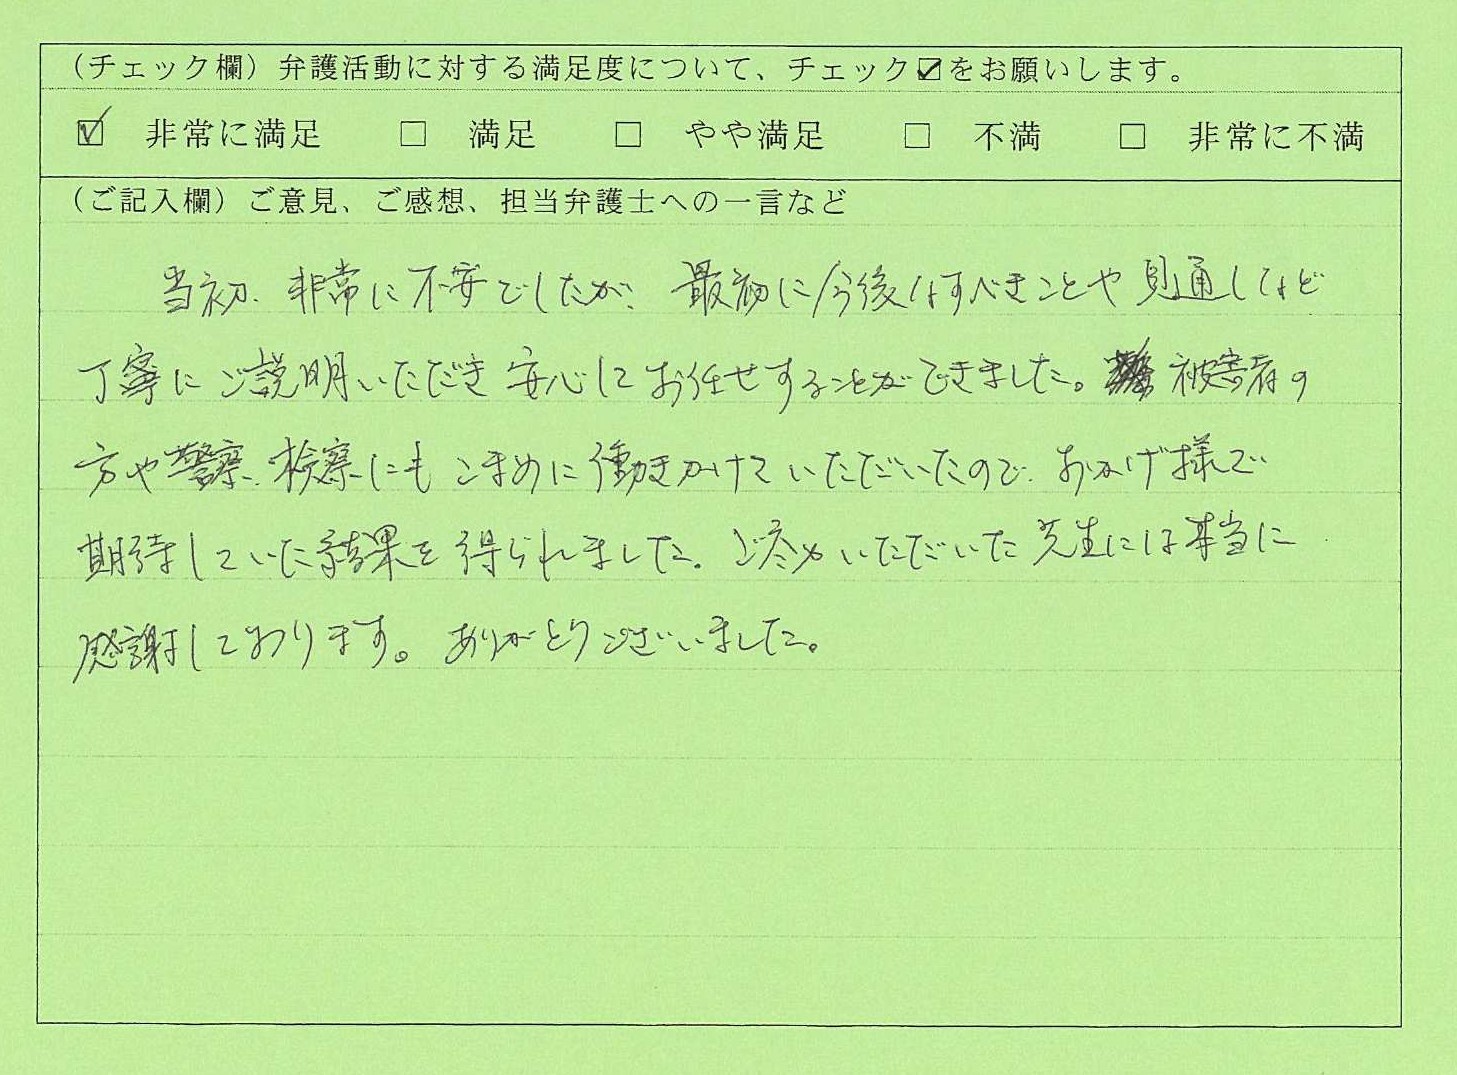 （チェック欄）弁護活動に対する満足度について、チェック☑をお願いします。
☑ 非常に満足 □ 満足 □ やや満足 □ 不満 □ 非常に不満
（ご記入欄）ご意見、ご感想、担当弁護士への一言など
当初、非常に不安でしたが、最初に今後なすべきことや見通しなど
丁寧にご説明いただき安心してお任せすることができました。被害者の
方や警察、検察にもこまめに働きかけていただいたので、おかげ様で
期待していた結果を得られました。ご尽力いただいた先生には本当に
感謝しております。ありがとうございました。